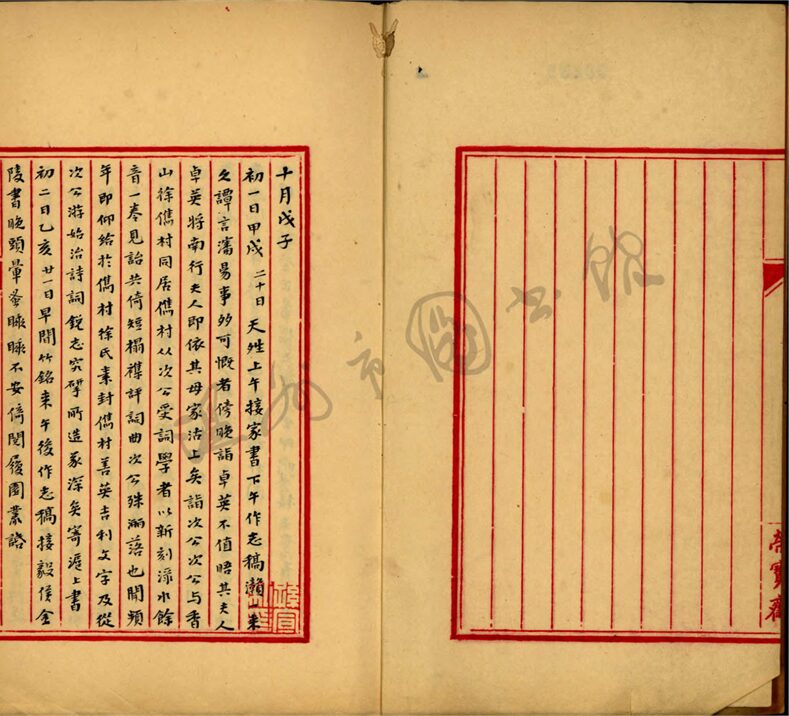 十月戊子
初一日甲戌 二十日 天姓上午接家書下午作志稿瀨一来
久譚言瀋昜事多可慨者傍晚詣卓英不值晤其夫人
卓英將南行夫人即依其母家沽上矣詣次公次公与香
山徐儁村同居儁村从次公受詞學者以新刻淥水餘
音一卷見詒共倚短榻襍評詞曲次公殊洒落也聞頻
年即仰給於儁村徐氏素封儁村善英吉利文字及從
次公游始治詩詞銳志究擘所造蒙深矣寄滬上書
初二日乙亥 廿一日 早間竹銘来午後作志稿接毅侯金
陵書晚頭暈蚤睡睡不安倚閱履園叢話
榮寶齋
市圖书館